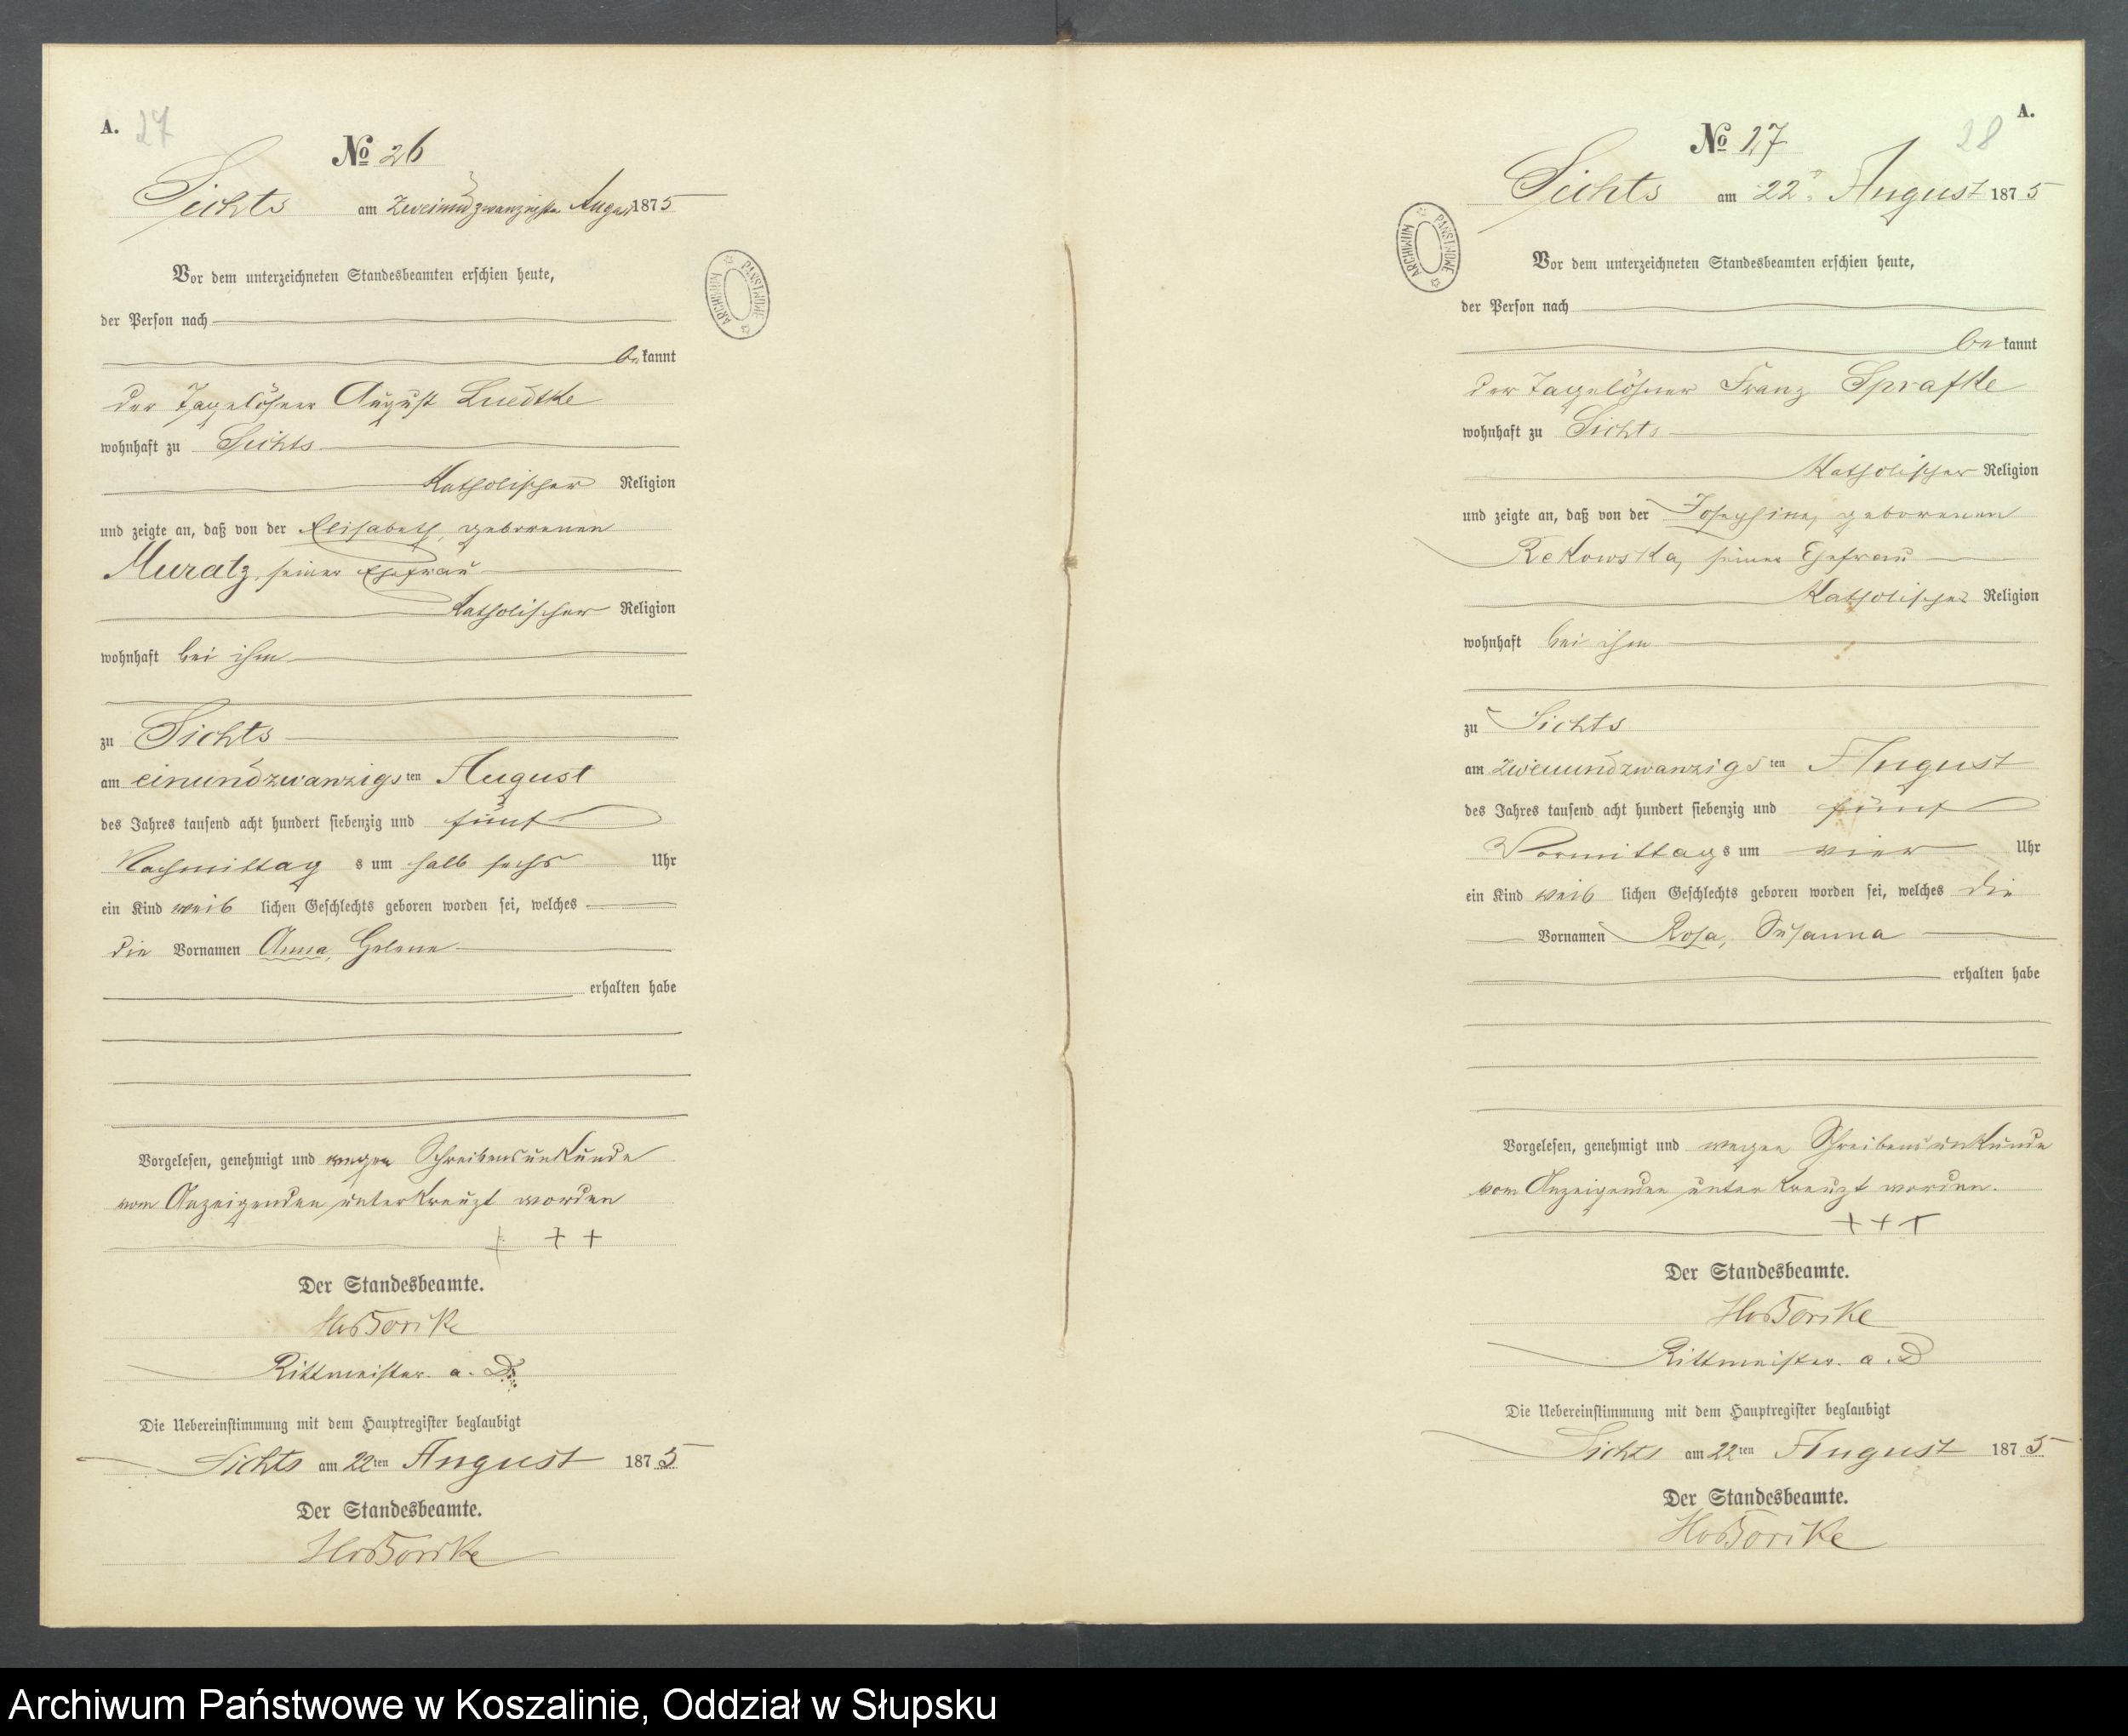 A. 27
№ 26
Sichts am Zweiundzwanzigsten August 1875
Vor dem unterzeichneten Standesbeamten erschien heute,
der Person nach
bekannt
der Tagelöhner August Luedtke
wohnhaft zu Sichts
Katholischer Religion
und zeigte an, daß von der Elisabeth, geborenen
Muratz, seiner Ehefrau
Katholischer Religion
wohnhaft bei ihm
zu Sichts
am einundzwanzigsten August
des Jahres tausend acht hundert siebenzig und fünf
Nachmittags um halb sechs Uhr
ein Kind weiblichen Geschlechts geboren worden sei, welches
die Vornamen Anna, Helene
erhalten habe
Vorgelesen, genehmigt und wegen Schreibensunkunde
vom Anzeigenden unterkreuzt worden
+ + +
Der Standesbeamte.
Rittmeister a. D.
Die Uebereinstimmung mit dem Hauptregister beglaubigt
Sichts am 22ten August 1875
Der Standesbeamte.
ARCHIWUM PAŃSTWOWE
A.
28
№ 27
Sichts am 22. August 1875
ARCHIWUM PAŃSTWOWE
Vor dem unterzeichneten Standesbeamten erschien heute,
der Person nach
bekannt
der Tagelöhner Franz Sprafke
wohnhaft zu Sichts
Katholischer Religion
und zeigte an, daß von der Josephine, geborenen
Rekowska, seiner Ehefrau
Katholischer Religion
wohnhaft bei ihm
zu Sichts
am zweiundzwanzigsten August
des Jahres tausend acht hundert siebenzig und fünf
Vormittags um vier Uhr
ein Kind weiblichen Geschlechts geboren worden sei, welches die
Vornamen Rosa, Susanna
erhalten habe
Vorgelesen, genehmigt und wegen Schreibensunkunde
vom Anzeigenden unterkreuzt worden.
+ + +
Der Standesbeamte.
Rittmeister a. D
Die Uebereinstimmung mit dem Hauptregister beglaubigt
Sichts am 22ten August 1875
Der Standesbeamte.
Archiwum Państwowe w Koszalinie, Oddział w Słupsku